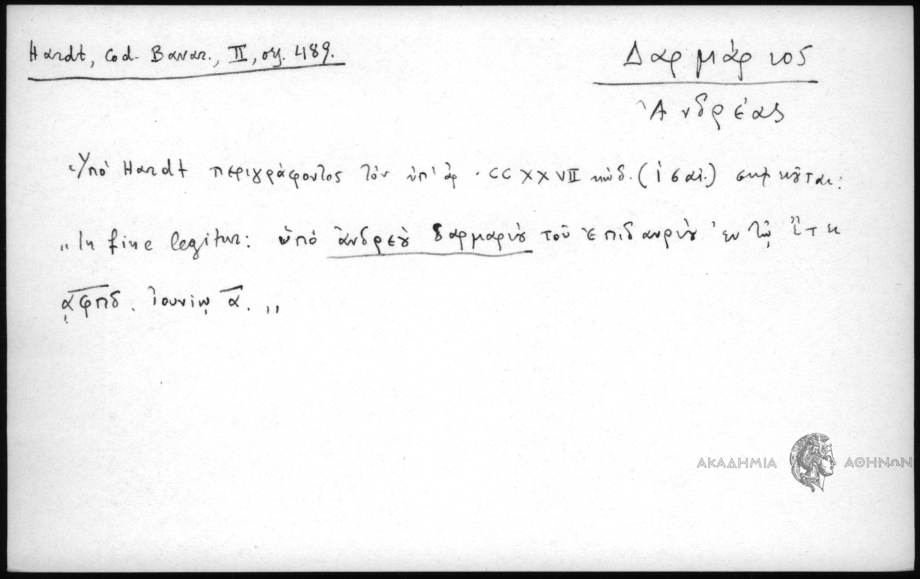 Hardt, Cod. Bavar., II, σελ. 489.
Δαρμάριος
Ἀνδρέας
Ὑπό Hardt περιγράφοντος τόν ὑπ' ἀρ. CCXXVII κώδ. (ἰσαι.) σημειοῦται:
„In fine legitur: ὑπό ἀνδρέου δαρμαρίου τοῦ ἐπιδαυρίου ἐν τῷ ἔτει
͵αφπδ. Ἰουνίῳ α. „
ΑΚΑΔΗΜΙΑ ΑΘΗΝΩΝ